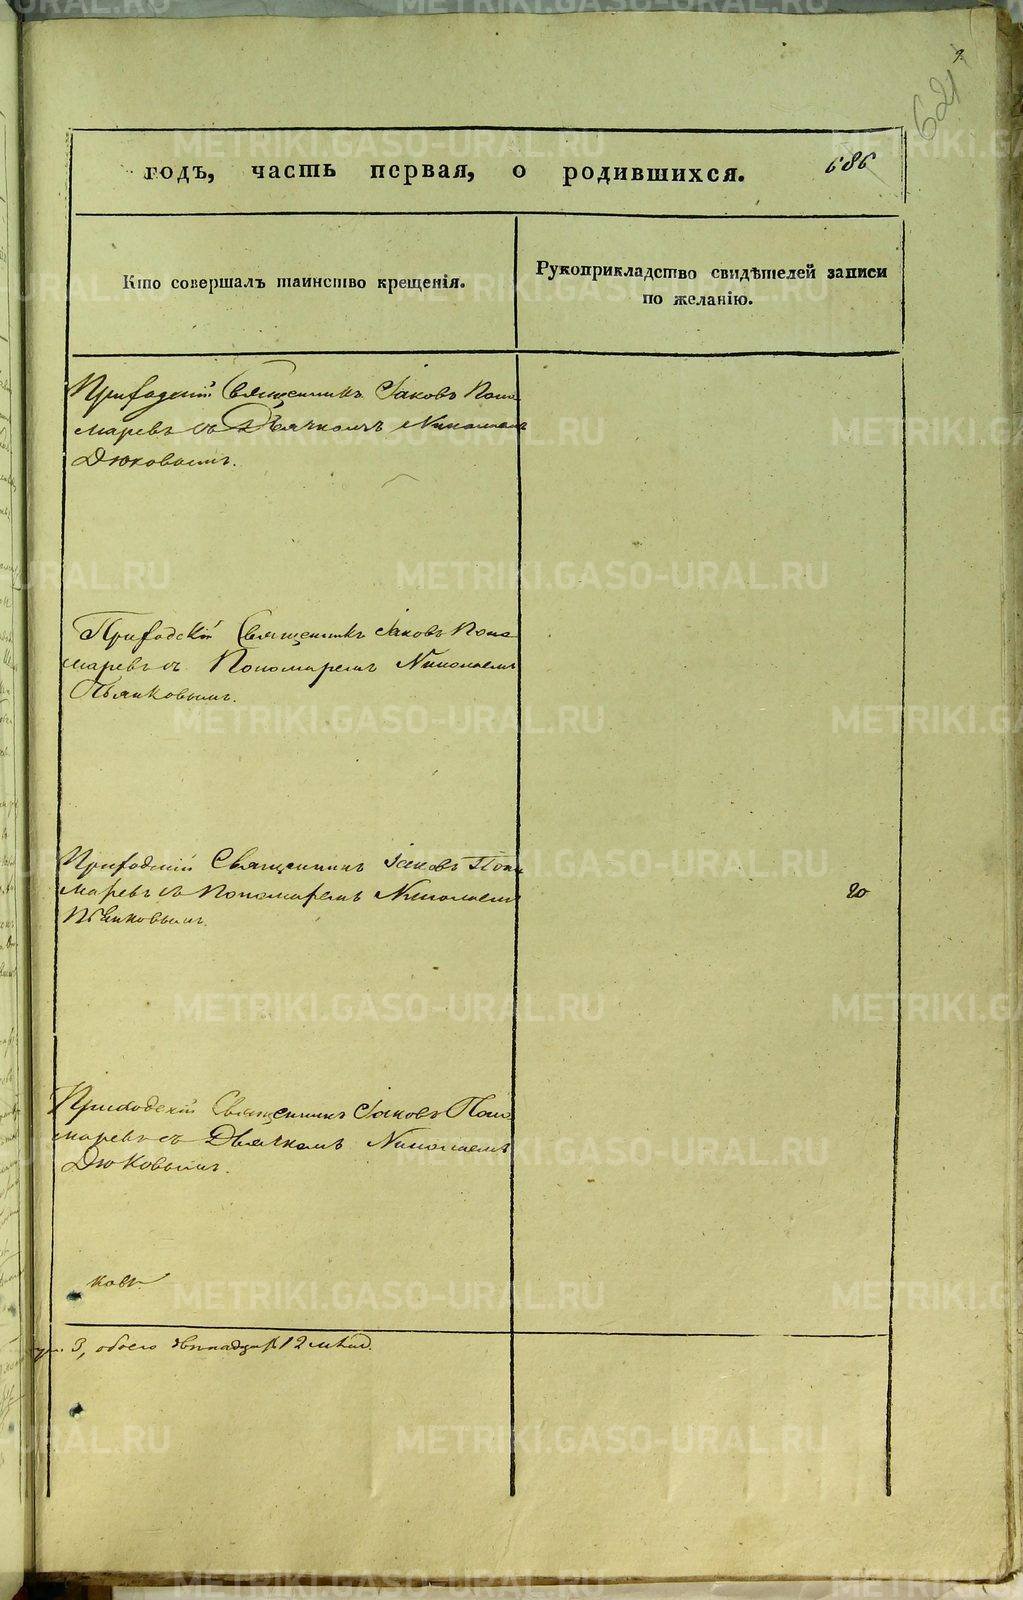 9.
621
годъ, часть первая, о родившихся.
686
Кто совершалъ таинство крещенія.
Рукоприкладство свидѣтелей записи
по желанію.
Приходскій Священникъ Іаковъ Поно
маревъ съ Дьячкомъ Николаемъ
Дюковымъ.
Приходскій Священникъ Іаковъ Поно
маревъ съ Пономаремъ Николаемъ
Пьянковымъ.
Приходскій Священникъ Іаковъ Поно
маревъ съ Пономаремъ Николаемъ
Пьянковымъ.
20
Приходскій Священникъ Іаковъ Поно
маревъ съ Дьячкомъ Николаемъ
Дюковымъ.
ковъ
3, обоего двенадцать 12
METRIKI.GASO-URAL.RU